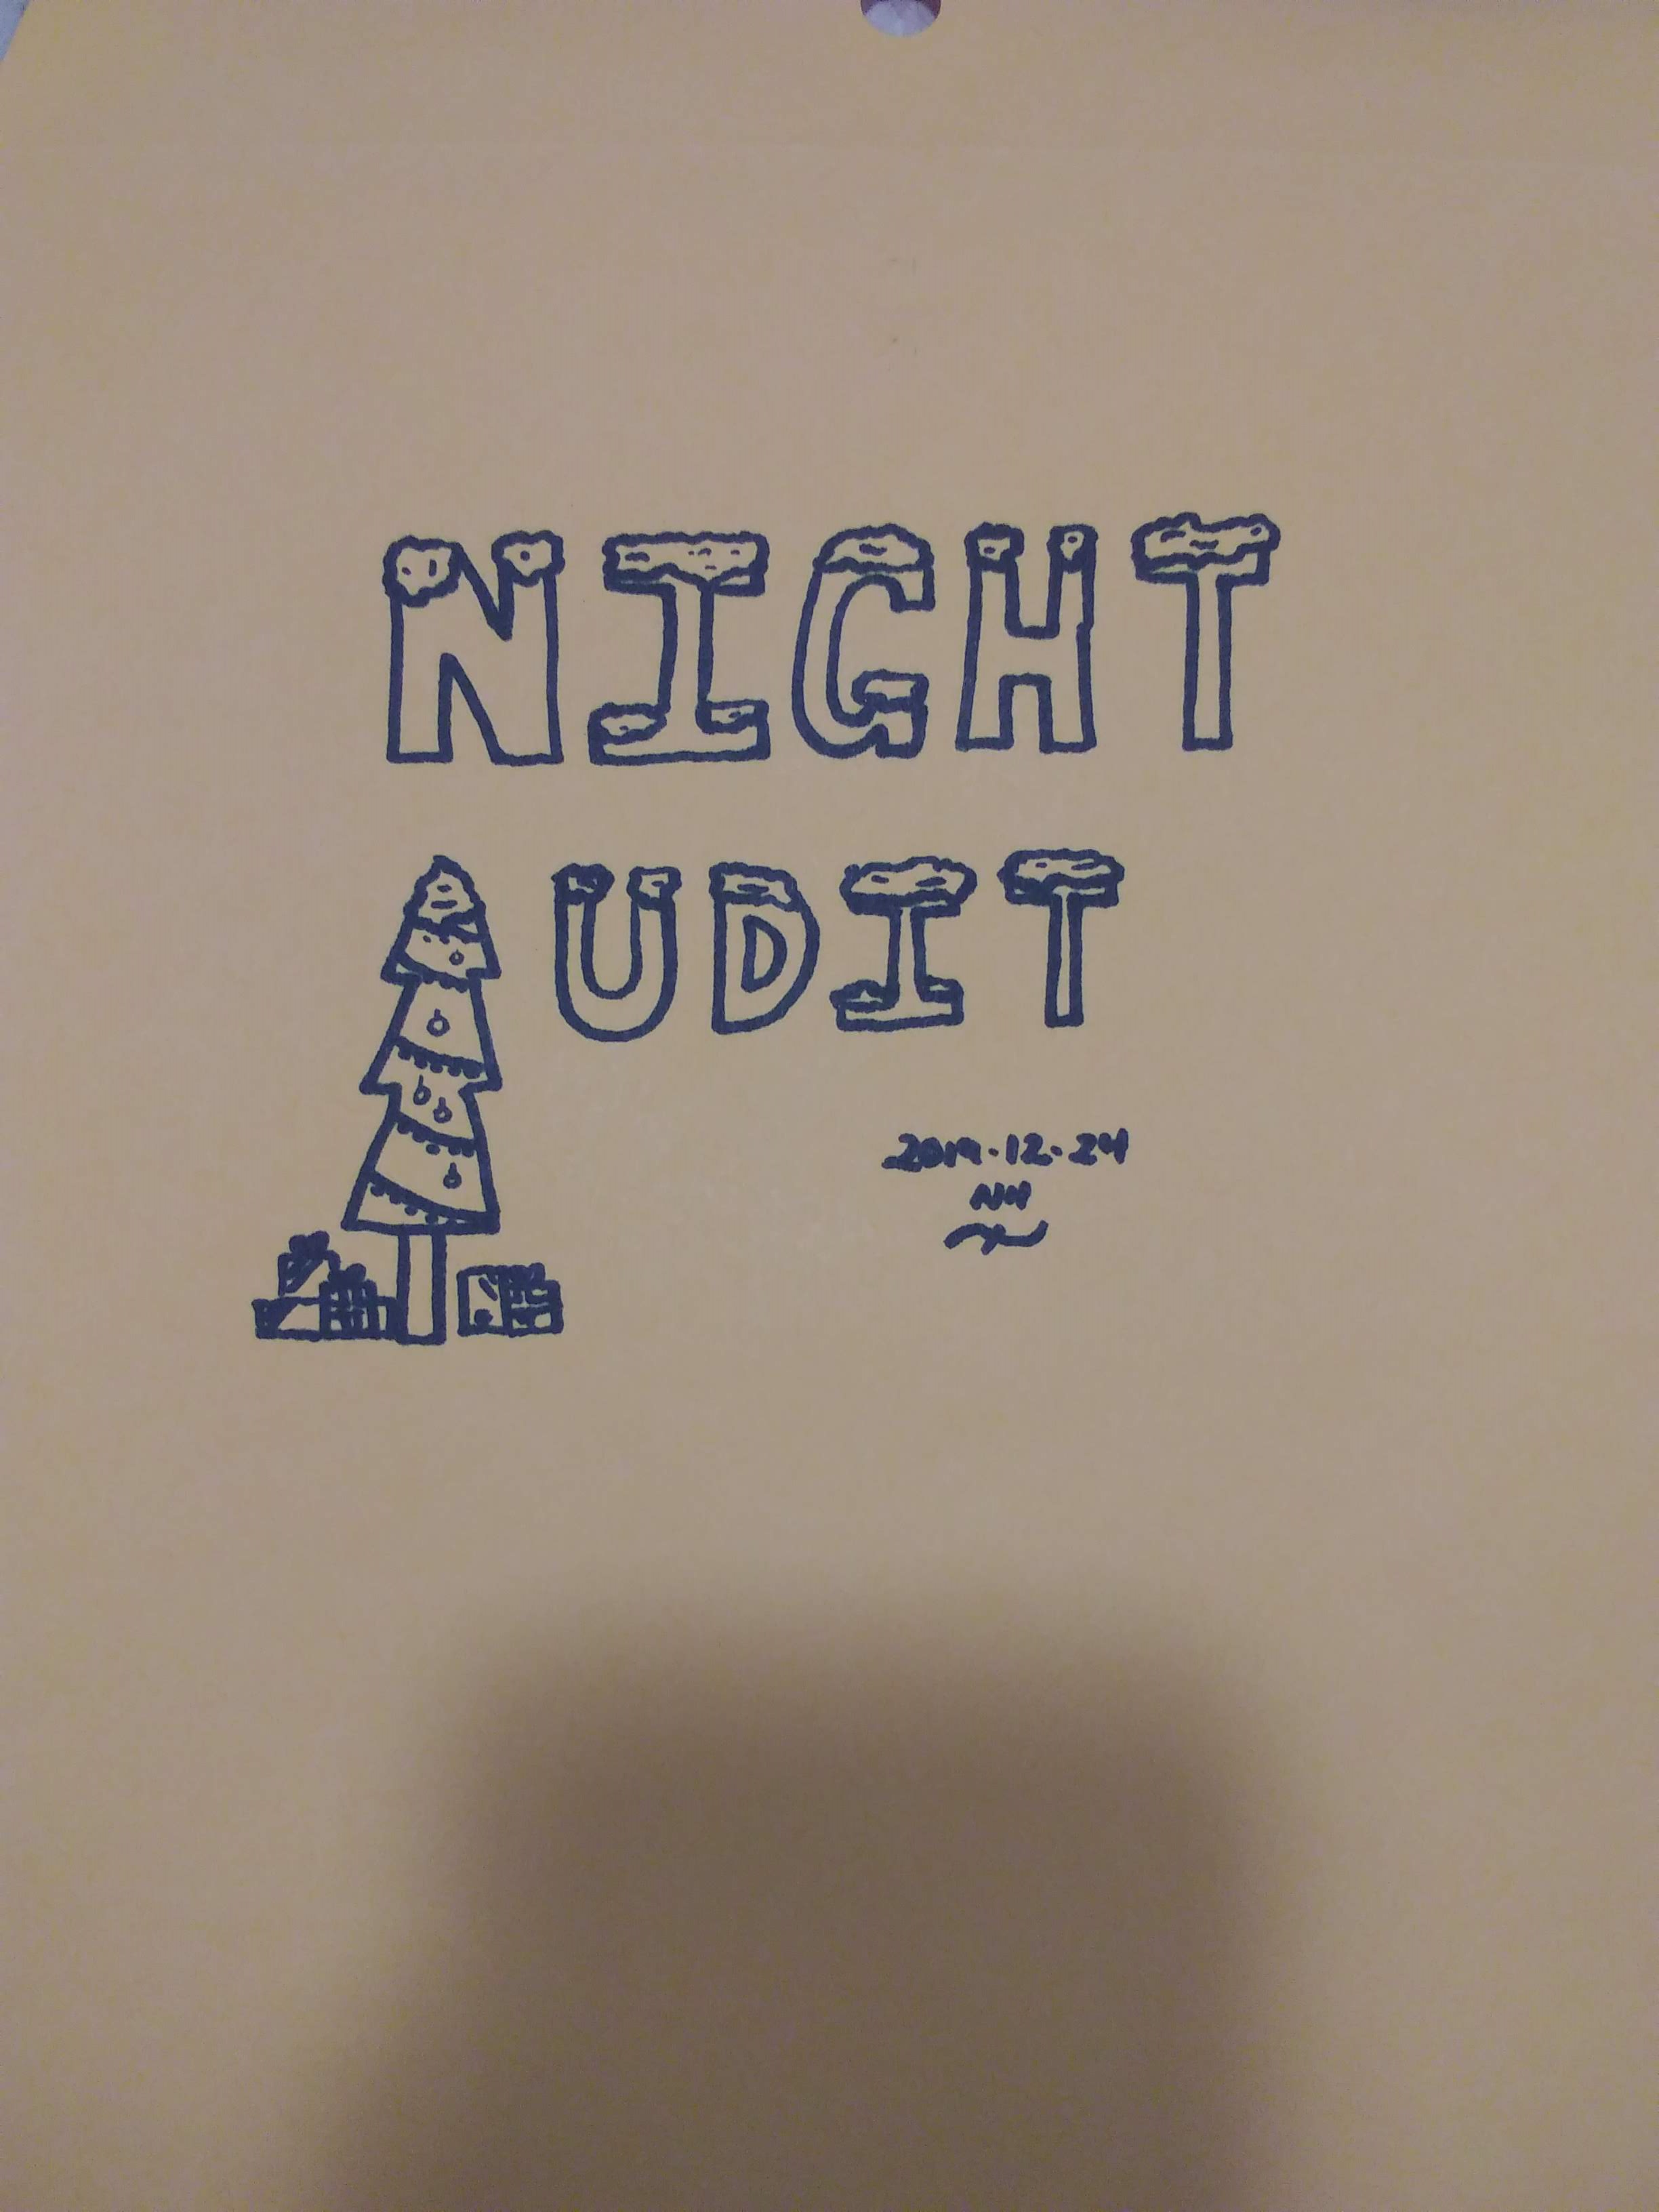 NIGHT
AUDIT
2019.12.24
NH